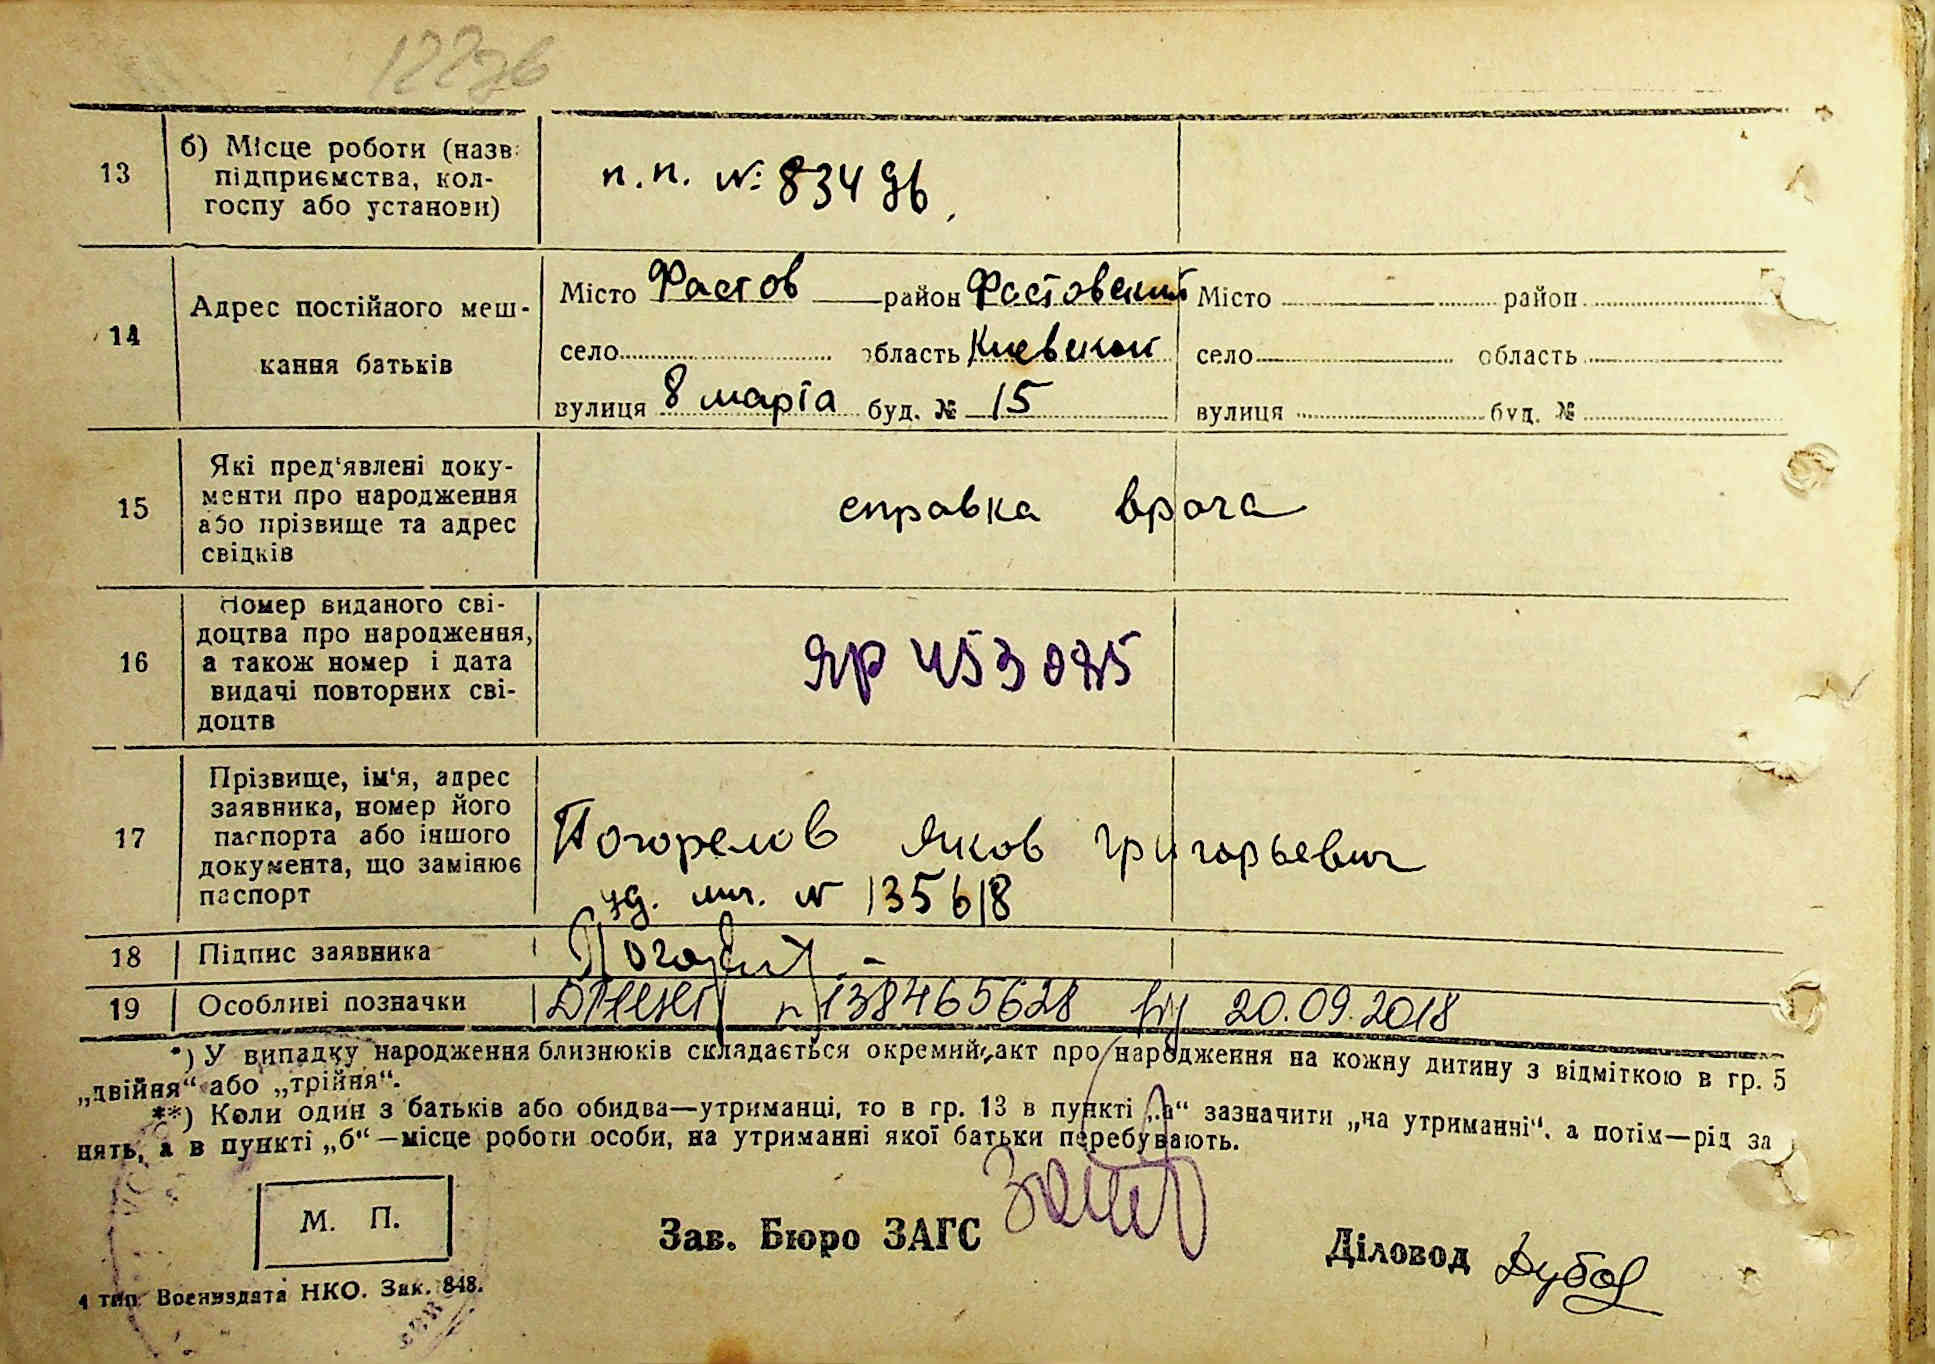 122зв
13
б) Місце роботи (назв
підприємства, кол-
госпу або установи)
п.п. №: 83498,
14
Адрес постійного меш-
кання батьків
Місто Фастов район Фастовский
село область Киевский
вулиця 8 марта буд. № 15
Місто район
село область
вулиця буд. №
15
Які пред'явлені доку-
менти про народження
або прізвище та адрес
свідків
справка врача
16
Номер виданого сві-
доцтва про народження,
а також номер і дата
видачі повторних сві-
доцтв
ЯР 453075
17
Прізвище, ім'я, адрес
заявника, номер його
паспорта або іншого
документа, що замінює
паспорт
Погорелов Яков Григорьевич
уд. лич. № 135618
18
Підпис заявника
19
Особливі позначки
n 138465628 від 20.09.2018
*) У випадку народження близнюків складається окремий акт про народження на кожну дитину з відміткою в гр. 5
„двійня“ або „трійня“.
**) Коли один з батьків або обидва—утриманці, то в гр. 13 в пункті „а“ зазначити „на утриманні“, а потім—рід за
нять, а в пункті „б“—місце роботи особи, на утриманні якої батьки перебувають.
М. П.
Зав. Бюро ЗАГС
Діловод
4 тип. Воениздата НКО. Зак. 848.